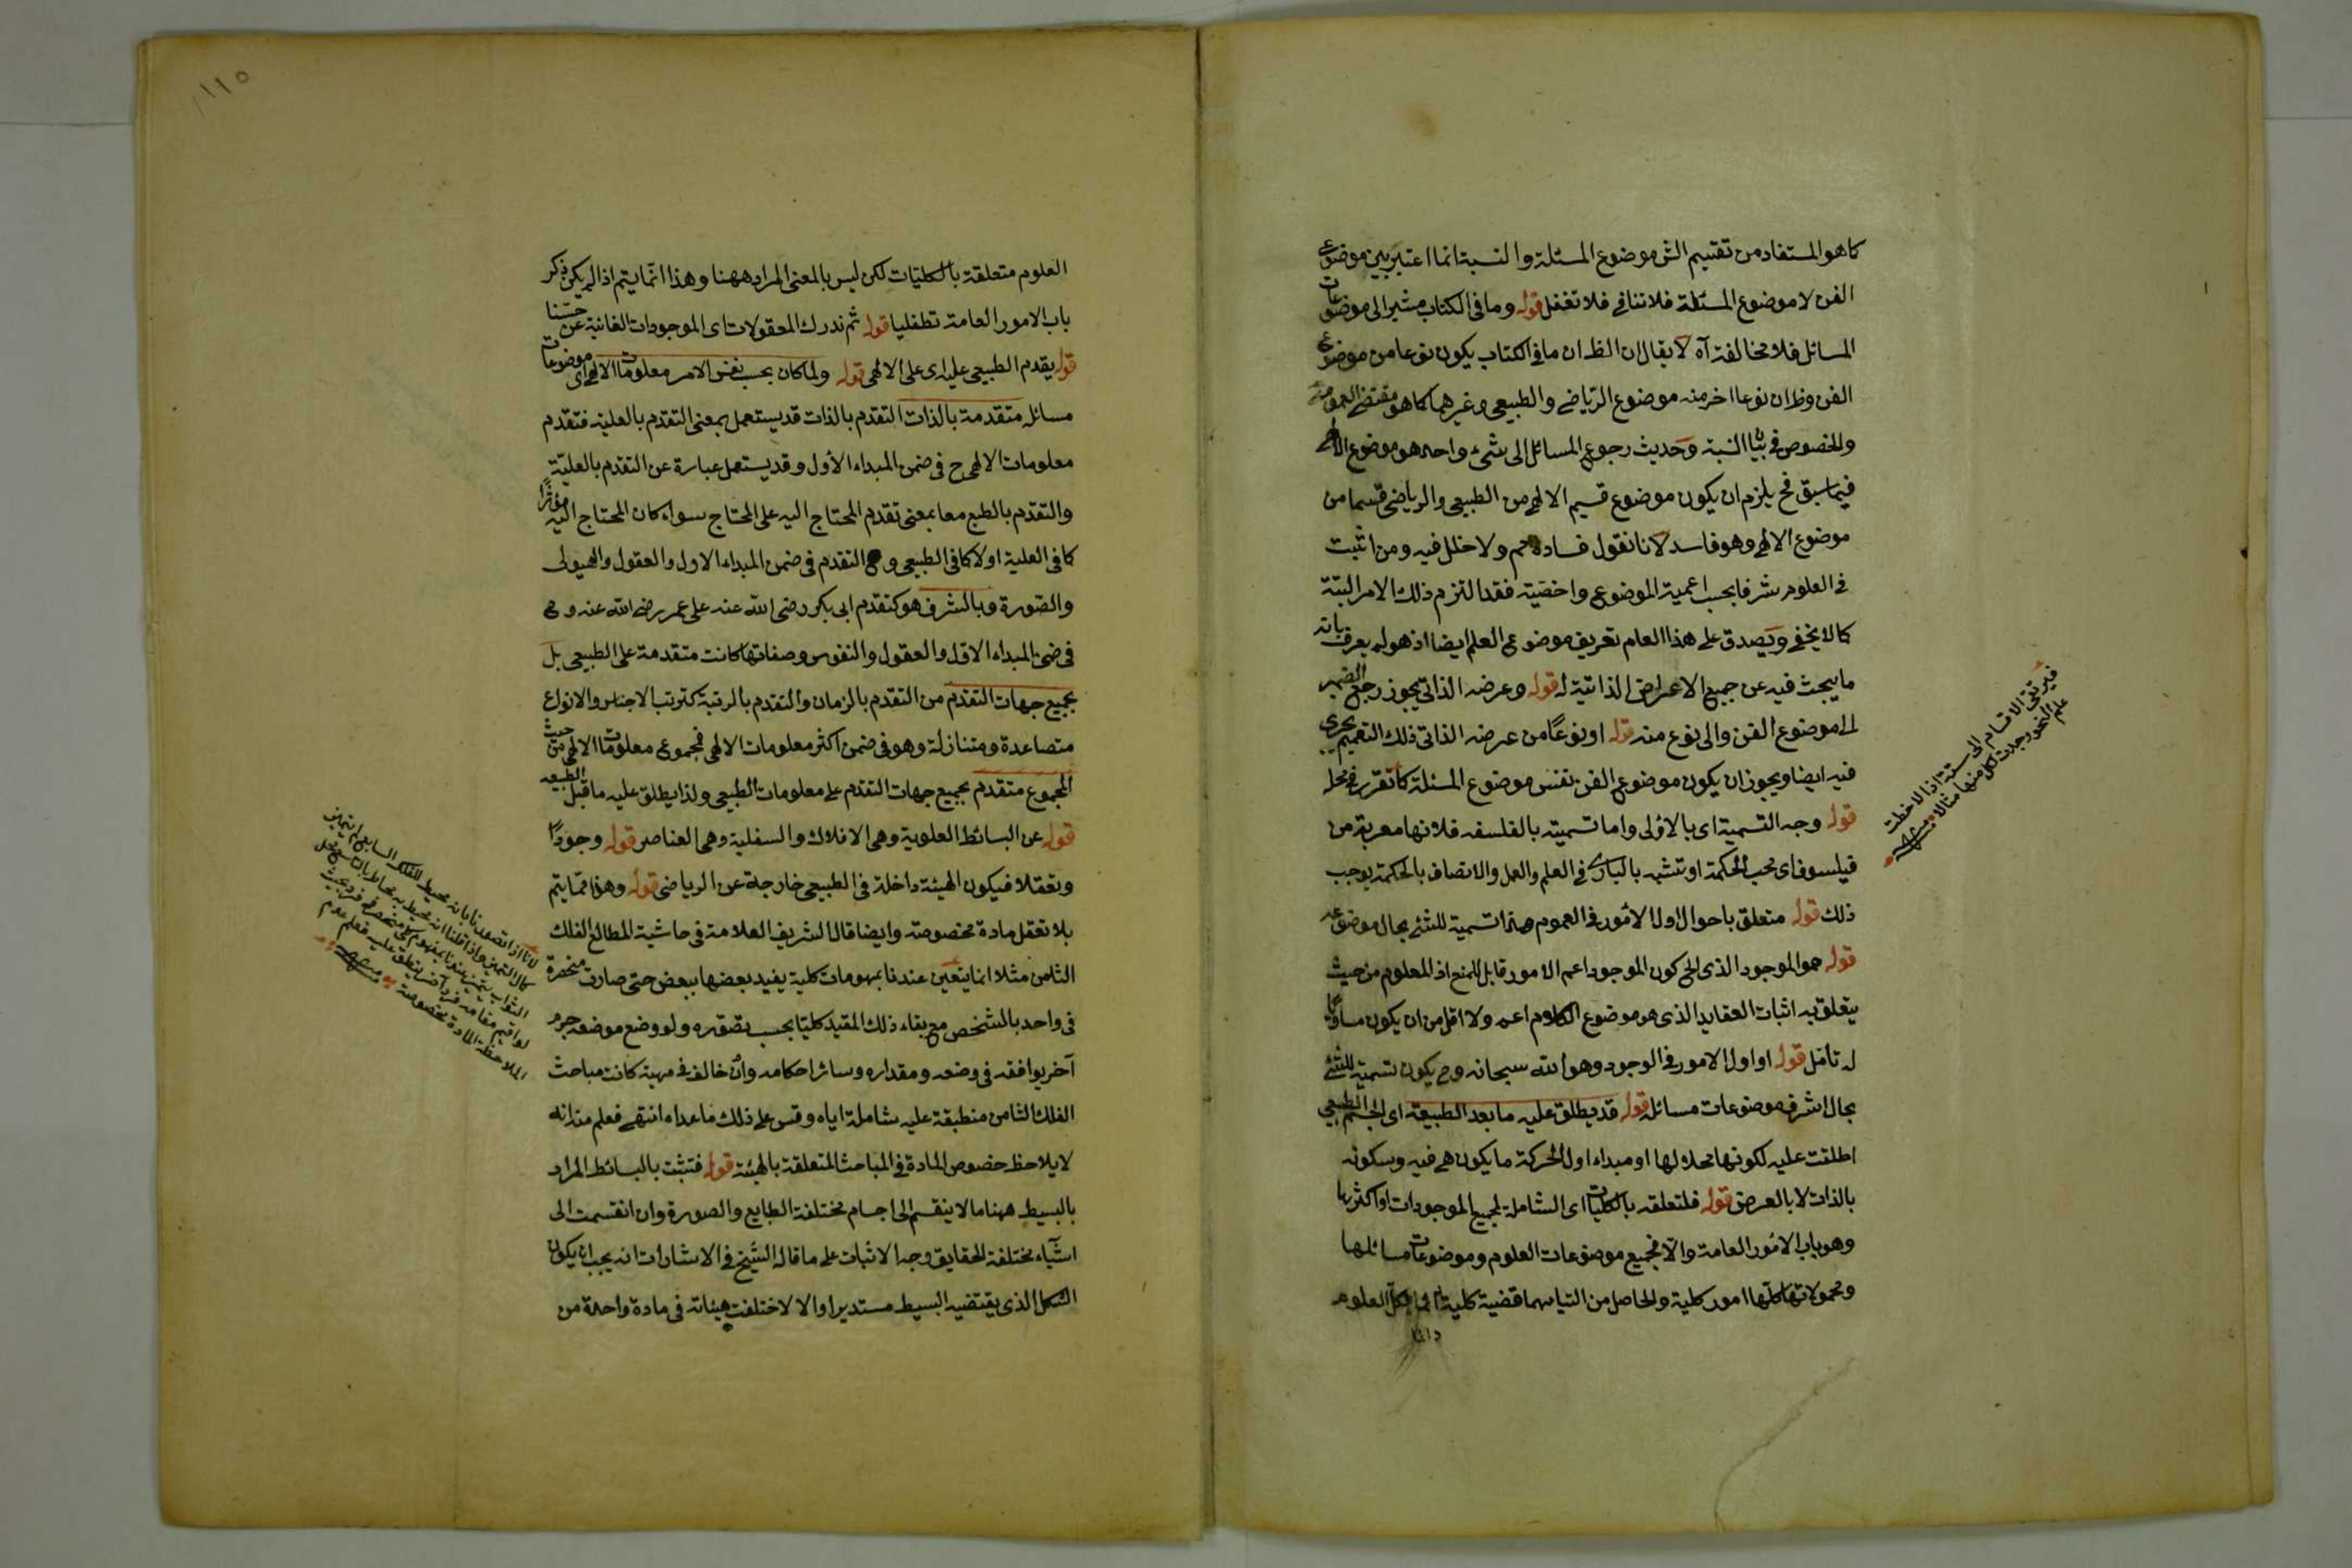 كما هو المستفاد من تقسيم الش موضوع المسئلة والنسبة انما اعتبر بين موضوع
الفن لا موضوع المسئلة فلا تنافي فلا تغفل قوله وما في الكتاب مشير الى موضوعات
المسائل فلا مخالفة آه لا يقال ان الظ ان ما في الكتاب يكون نوعا من موضوع
الفن وظ ان نوعا اخر منه موضوع الرياضي والطبيعي وغيرهما كما هو مقتضى العموم
والخصوص في النسبة وحديث رجوع المسائل الى شئ واحد هو موضوع
فيما سبق فح يلزم ان يكون موضوع قسيم الالهي من الطبيعي والرياضي قسما من
موضوع الالهي وهو فاسد لانا نقول فساده مم ولا خلل فيه ومن اثبت
في العلوم شرفا بحسب اعمية الموضوع واخصيته فقد التزم ذلك الامر البتة
كما لا يخفى ويصدق على هذا العام تعريف موضوع العلم ايضا اذ هو يعرف بانه
ما يبحث فيه عن جميع الاعراض الذاتية له قوله وعرضه الذاتي يجوز رجع الضمير
الى موضوع الفن والى نوع منه قوله او نوعا من عرضه الذاتي ذلك التعميم يجري
فيه ايضا ويجوز ان يكون موضوع الفن نفس موضوع المسئلة كما تقرر في محله
قوله وجه التسمية اى بالاولى واما تسميته بالفلسفه فلانها معربة من
فيلسوف اى محب الحكمة او تشبه بالبارى في العلم والعمل والاتصاف بالحكمة يوجب
ذلك قوله متعلق باحوال اول الامور في العموم هذا تسمية للشئ بحال موضوعه
قوله هو الموجود الذى الخ كون الموجود اعم الامور قابل للمنع اذ المعلوم من حيث
يتعلق به اثبات العقايد الذى هو موضوع الكلام اعم ولا اقل من ان يكون مساويا
له تأمل قوله او اول الامور في الوجود وهو الله سبحانه وح يكون تسمية للشئ
بحال اشرف موضوعات مسائله قوله قد يطلق عليه ما بعد الطبيعة اى الجسم الطبيعي
اطلقت عليه لكونها محلا لها او مبداء اول الحركة ما يكون هي فيه وسكونه
بالذات لا بالعرض قوله فلتعلقه بالكليات اى الشاملة لجميع الموجودات او اكثرها
وهو باب الامور العامة والا فجميع موضوعات العلوم وموضوعات مسائلها
ومحمولاتها كلها امور كلية والحاصل من التيامهما قضية كلية العلوم
فيرتقى الاقسام الى ستة اذا لاحظت
علم النحو وجدت كل منها مثالا منه
١١٥
العلوم متعلقة بالكليات لكن ليس بالمعنى المراد ههنا وهذا انما يتم اذا لم يكن ذكر
باب الامور العامة تطفليا قوله ثم ندرك المعقولات اى الموجودات الغائبة عن حسنا
قوله يقدم الطبيعي عليه اى على الالهي قوله ولما كان بحسب نفس الامر معلومات الالهي اى موضوعات
مسائله متقدمة بالذات التقدم بالذات قد يستعمل بمعنى التقدم بالعلية فتقدم
معلومات الالهي ح في ضمن المبداء الاول وقد يستعمل عبارة عن التقدم بالعلية
والتقدم بالطبع معا بمعنى تقدم المحتاج اليه على المحتاج سواء كان المحتاج اليه مؤثرا
كما في العلية او لا كما في الطبيعي و التقدم في ضمن المبداء الاول والعقول والهيولى
والصورة وبالشرف هو كتقدم ابى بكر رضى الله عنه على عمر رضى الله عنه وهى
في ضمن المبداء الاول والعقول والنفوس وصفاتها كانت متقدمة على الطبيعي بل
بجميع جهات التقدم من التقدم بالزمان والتقدم بالرتبة كترتب الاجناس والانواع
متصاعدة ومتنازلة وهو في ضمن اكثر معلومات الالهي فمجموع معلومات الالهي من حيث
المجموع متقدم بجميع جهات التقدم على معلومات الطبيعي ولذا يطلق عليه ما قبل الطبيعه
قوله عن البسائط العلوية وهى الافلاك والسفلية وهى العناصر قوله وجودا
وتعقلا فيكون الهيئة داخلة في الطبيعي خارجة عن الرياضى قوله وهذا مما يتم
بلا تعقل مادة مخصوصة وايضا قال الشريف العلامة في حاشية المطالع الفلك
الثامن مثلا انما يتعين عندنا بمفهومات كلية يفيد بعضها ببعض حتى صارت منحصرة
في واحد بالشخص مع بقاء ذلك المقيد كليا بحسب تصوره ولو وضع موضعه جرم
آخر يوافقه في وضعه ومقداره وسائر احكامه وان خالفه في مهية كانت مباحث
الفلك الثامن منطبقة عليه شاملة اياه وقس على ذلك ما عداه انتهى فعلم منه انه
لا يلاحظ خصوص المادة في المباحث المتعلقة بالهيئة قوله فتثبت بالبسائط المراد
بالبسيط ههنا ما لا ينقسم الى اجسام مختلفة الطبايع والصورة وان انقسمت الى
اشياء مختلفة الحقايق وجه الاثبات على ما قال الشيخ في الاشارات انه يجب ان يكون
الشكل الذى يقتضيه البسيط مستديرا والا لاختلفت هيئاته في مادة واحدة من
لانا اذا تصورنا بانه محيط للفلك السابع
لو اقيم مقامه فرد آخر ينطبق عليه فعلم عدم
الملاحظة المادة مخصوصة منه